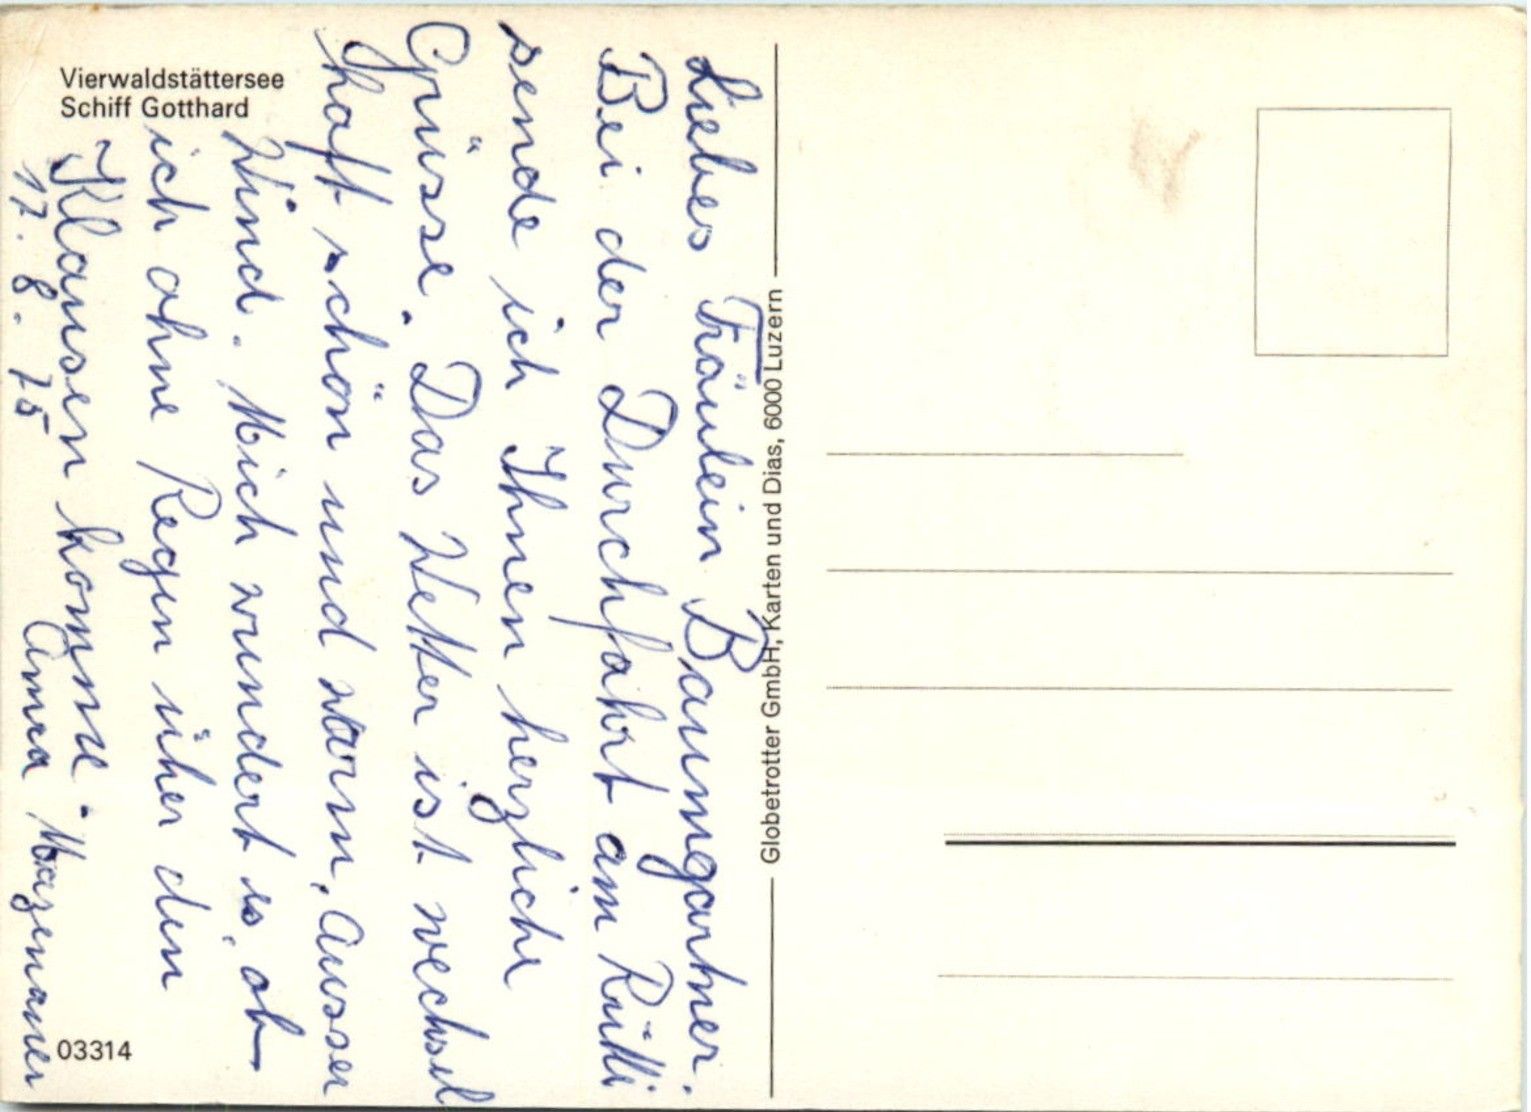 Vierwaldstättersee
Schiff Gotthard
Liebes Fräulein Baumgartner.
Bei der Durchfahrt am Rütli
sende ich Ihnen herzliche
Grüsse. Das Wetter ist wechsel
haft schön und warm, ausser
Wind. Mich wundert es, ob
ich ohne Regen über den
Klausen komme.
17. 8. 75
Anna Mazenauer
Globetrotter GmbH, Karten und Dias, 6000 Luzern
03314